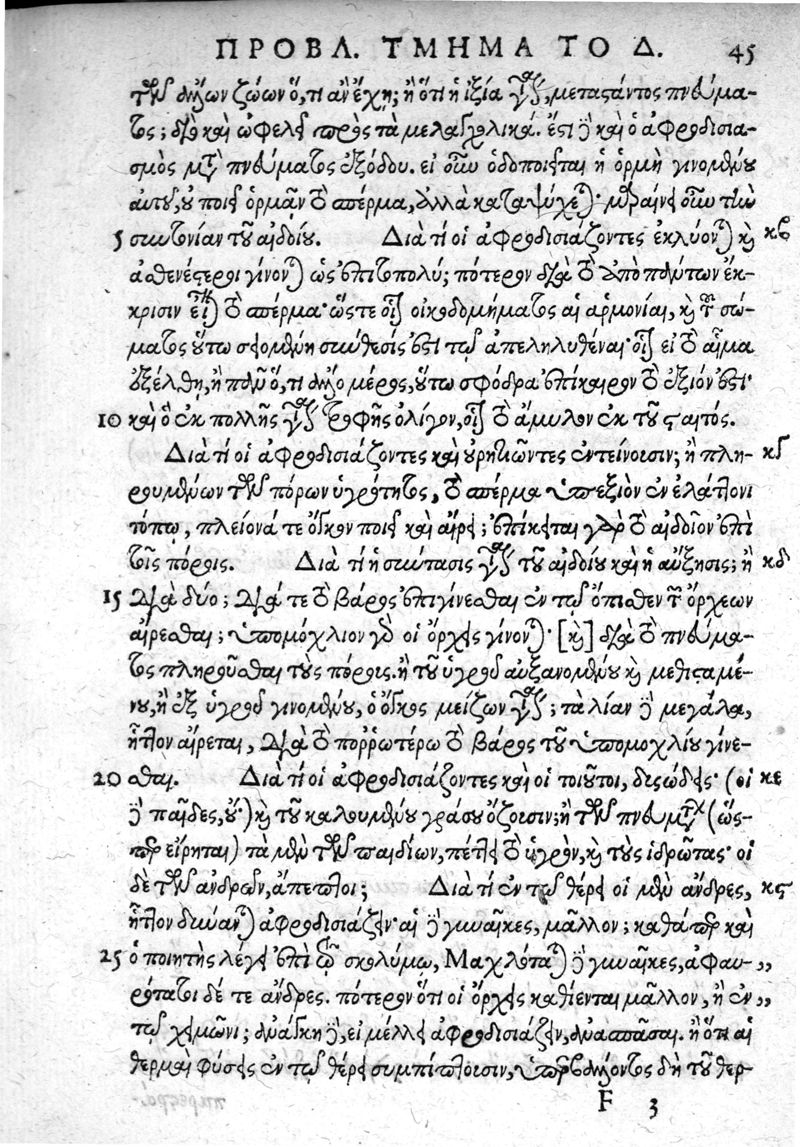 ΠΡΟΒΛ. ΤΜΗΜΑ ΤΟ Δ. 45
τῶν ἄλλων ζώων ὅ,τι ἂν ἔχῃ; ἢ ὅτι ἡ ἰξία ἐστὶ, μεταστάντος πνεύμα-
τος; διὸ καὶ ὠφελεῖ πρὸς τὰ μελαγχολικά. ἔστι δὲ καὶ ὁ ἀφροδισια-
σμὸς μετὰ πνεύματος ἐξόδου. εἰ οὖν ὁδοποιεῖται ἡ ὁρμὴ γινομένου
αὐτοῦ, οὐ ποιεῖ ὁρμᾶν τὸ σπέρμα, ἀλλὰ καταψύχεται· μαραίνει οὖν τὴν
5 συντονίαν τοῦ αἰδοίου. Διὰ τί οἱ ἀφροδισιάζοντες ἐκλύονται καὶ κβ
ἀσθενέστεροι γίνονται ὡς ἐπιτοπολύ; πότερον διὰ τὸ ἀπὸ πάντων ἔκ-
κρισιν εἶναι τὸ σπέρμα· ὥστε οἷον οἰκοδομήματος αἱ ἁρμονίαι, καὶ τοῦ σώ-
ματος οὕτω σύνθεσίς ἐστι τῷ ἀπεληλυθέναι· οἷον εἰ τὸ αἷμα
ἐξέλθῃ, ἢ πᾶν ὅ,τι ἄλλο μέρος, οὕτω σφόδρα ἐπίκαιρον τὸ ἐξιόν ἐστι·
10 καὶ ὃ ἐκ πολλῆς ἐστὶ τροφῆς ὀλίγον, οἷον τὸ ἄμυλον ἐκ τοῦ σταιτός.
Διὰ τί οἱ ἀφροδισιάζοντες καὶ οὐρητιῶντες ἐντείνουσιν; ἢ πλη- κγ
ρουμένων τῶν πόρων ὑγρότητος, τὸ σπέρμα ὑπεξιὸν ἐν ἐλάττονι
τόπῳ, πλείονά τε ὄγκον ποιεῖ καὶ αἴρει; ἐπίκειται γὰρ τὸ αἰδοῖον ἐπὶ
τοῖς πόροις. Διὰ τί ἡ σύντασις ἐστὶ τοῦ αἰδοίου καὶ ἡ αὔξησις; ἢ κδ
15 διὰ δύο; διά τε τὸ βάρος ἐπιγίνεσθαι ἐν τῷ ὄπισθεν τῶν ὄρχεων
αἴρεσθαι; ὑπομόχλιον γὰρ οἱ ὄρχεις γίνονται· [καὶ] διὰ τὸ πνεύμα-
τος πληροῦσθαι τοὺς πόρους. ἢ τοῦ ὑγροῦ αὐξανομένου καὶ μεθισταμέ-
νου, ἢ ἐξ ὑγροῦ γινομένου, ὁ ὄγκος μείζων ἐστί; τὰ λίαν δὲ μεγάλα,
ἧττον αἴρεται, διὰ τὸ ποῤῥωτέρω τὸ βάρος τοῦ ὑπομοχλίου γίνε-
20 σθαι. Διὰ τί οἱ ἀφροδισιάζοντες καὶ οἱ τοιοῦτοι, δυσώδεις· (οἱ κε
δὲ παῖδες, οὔ·) καὶ τοῦ καλουμένου γράσου ὄζουσιν; ἢ τῶν πνευμάτων (ὥσ-
περ εἴρηται) τὰ μὲν τῶν παιδίων, πέττει τὸ ὑγρὸν, καὶ τοὺς ἱδρῶτας· οἱ
δὲ τῶν ἀνδρῶν, ἄπεπτοι; Διὰ τί ἐν τῷ θέρει οἱ μὲν ἄνδρες, κς
ἧττον δύνανται ἀφροδισιάζειν· αἱ δὲ γυναῖκες, μᾶλλον; καθάπερ καὶ
25 ὁ ποιητὴς λέγει ἐπὶ τῷ σκολύμῳ, Μαχλόταται δὲ γυναῖκες, ἀφαυ- ,,
ρότατοι δέ τε ἄνδρες. πότερον ὅτι οἱ ὄρχεις καθίενται μᾶλλον, ἢ ἐν ,,
τῷ χειμῶνι; ἀνάγκη δὲ, εἰ μέλλει ἀφροδισιάζειν, ἀνασπᾶσαι. ἢ ὅτι αἱ
θερμαὶ φύσεις ἐν τῷ θέρει συμπίπτουσιν, ὑπερβάλλοντος δὴ τοῦ θερ-
F 3